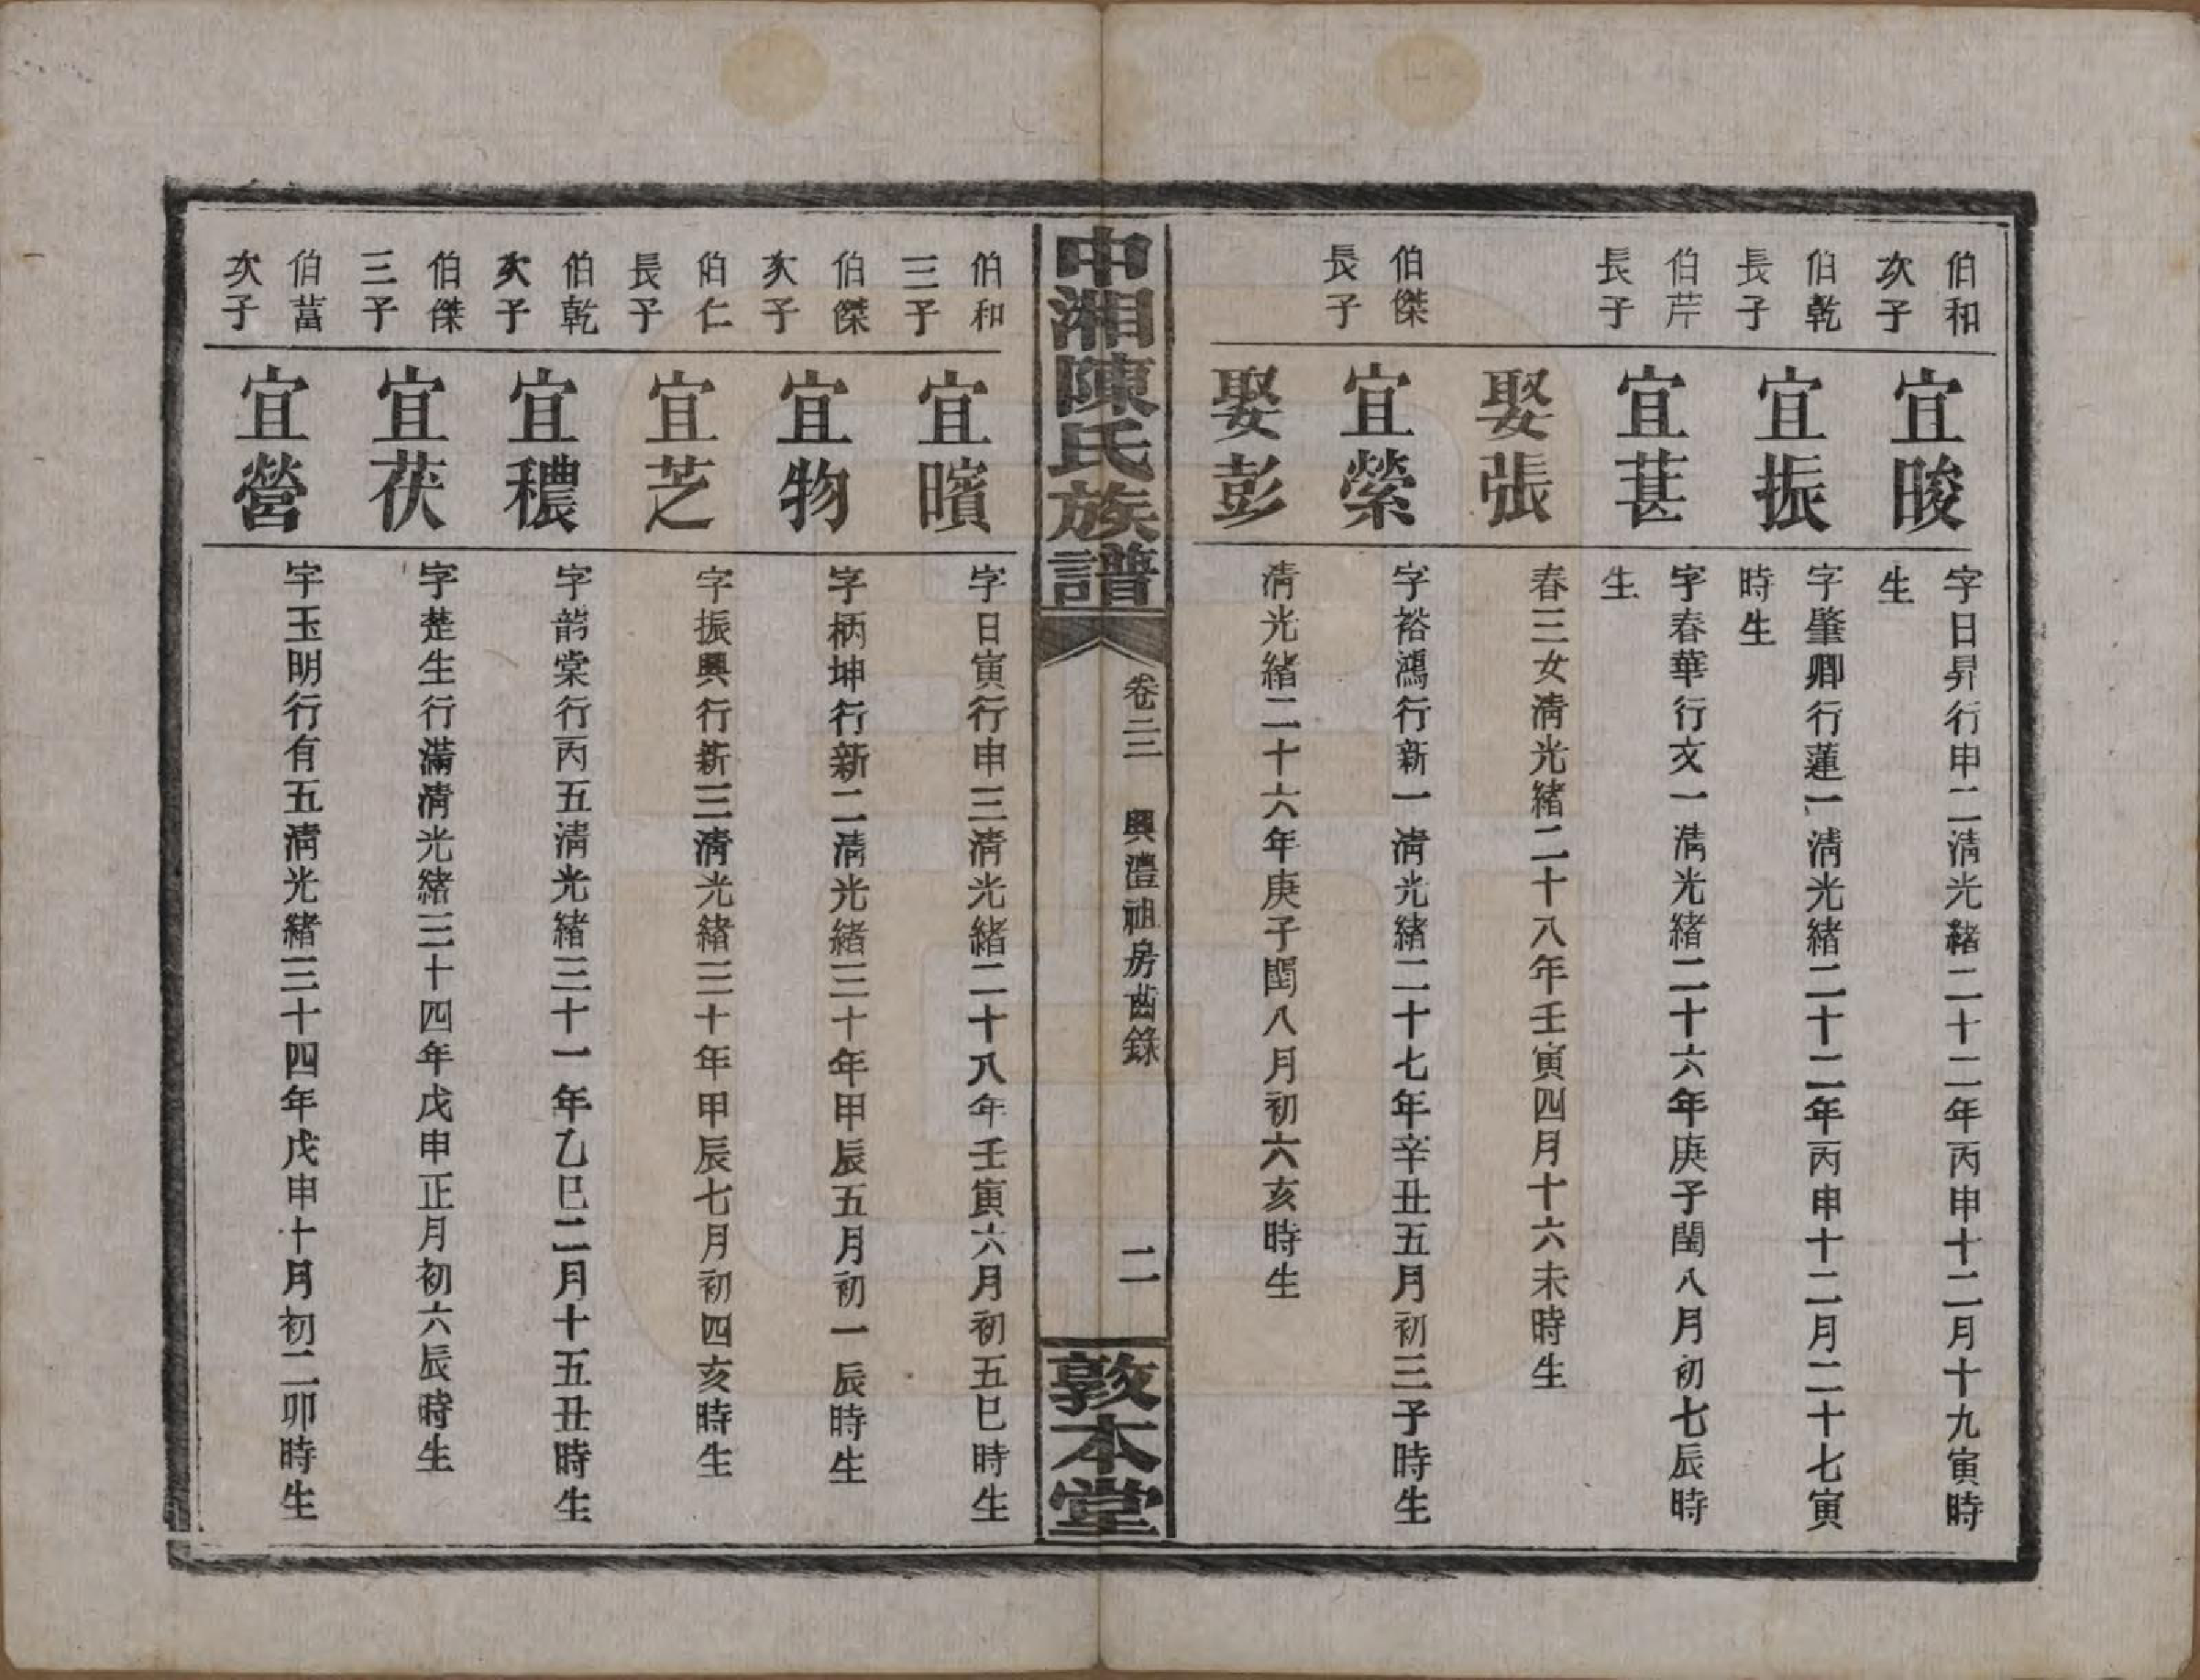 伯和
次子
宜晙
字日昇行申二清光緒二十二年丙申十二月十九寅時
生
伯乾
長子
宜振
字肇卿行蓮一清光緒二十二年丙申十二月二十七寅
時生
伯芹
長子
宜葚
字春華行文一清光緒二十六年庚子閏八月初七辰時
生
娶張
春三女清光緒二十八年壬寅四月十六未時生
伯傑
長子
宜縈
字裕鴻行新一清光緒二十七年辛丑五月初三子時生
娶彭
清光緒二十六年庚子閏八月初六亥時生
中湘陳氏族譜
卷三三 興澧祖房齒錄
二
敦本堂
伯和
三子
宜矉
字日寅行申三清光緒二十八年壬寅六月初五巳時生
伯傑
次子
宜物
字柄坤行新二清光緒三十年甲辰五月初一辰時生
伯仁
長子
宜芝
字振興行新三清光緒三十年甲辰七月初四亥時生
伯乾
次子
宜穠
字韵棠行丙五清光緒三十一年乙巳二月十五丑時生
伯傑
三子
宜茯
字楚生行滿清光緒三十四年戊申正月初六辰時生
伯葍
次子
宜營
字玉明行有五清光緒三十四年戊申十月初二卯時生